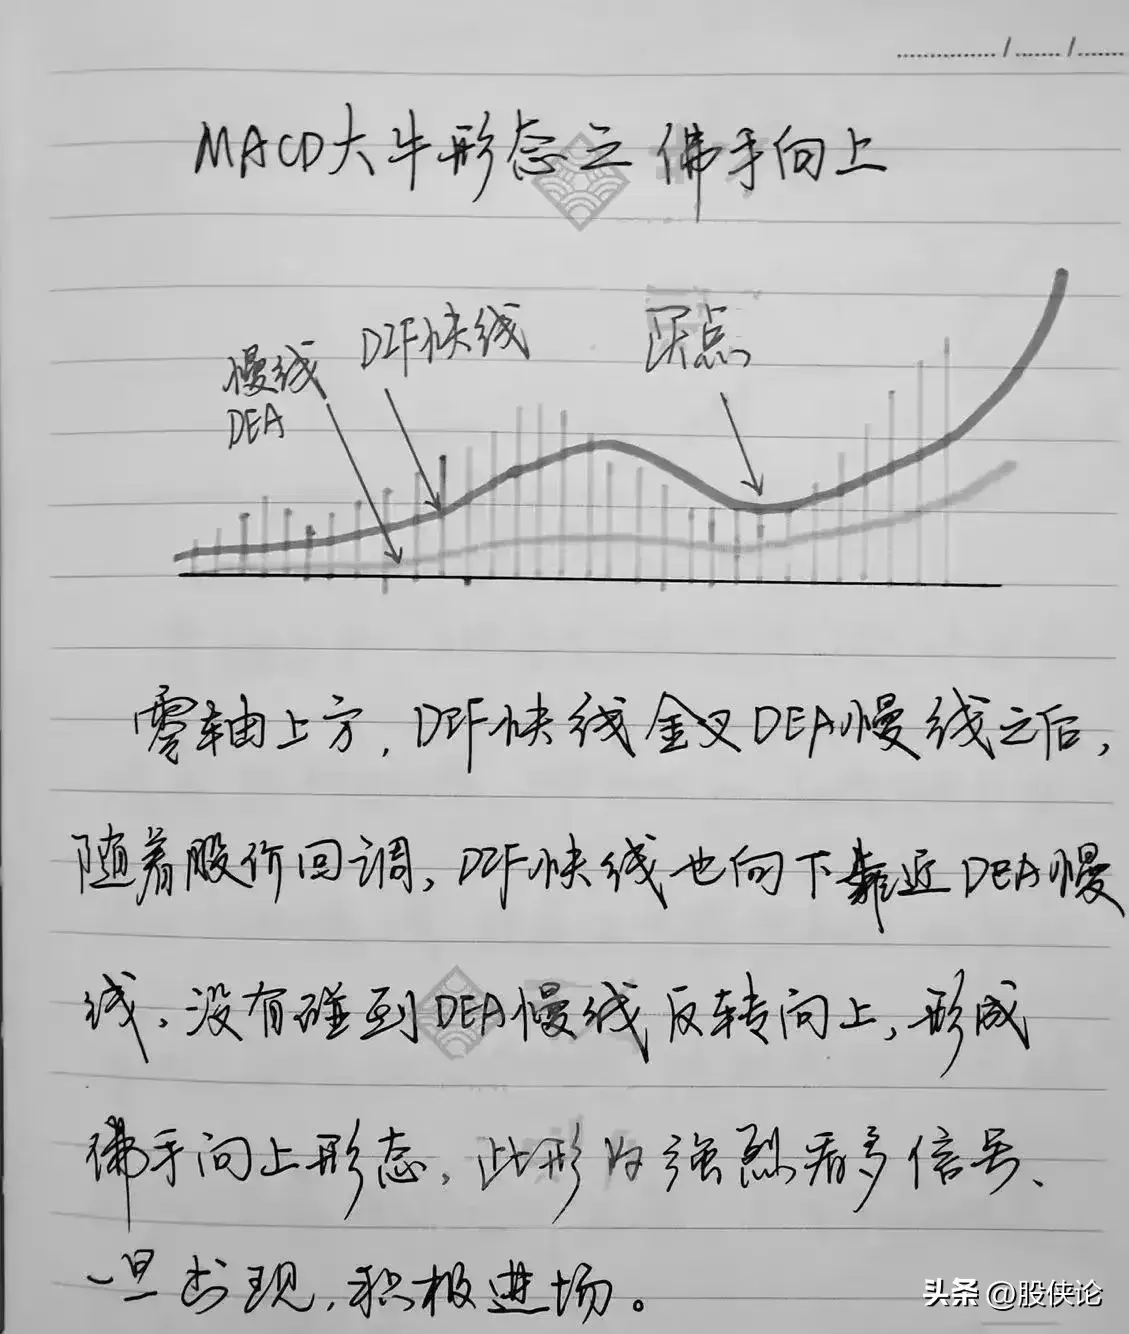 MACD大牛形态之佛手向上
DIF快线
买点
慢线
DEA
零轴上方,DIF快线金叉DEA慢线之后,
随着股价回调,DIF快线也向下靠近DEA慢
线,没有碰到DEA慢线反转向上,形成
佛手向上形态,此形为强烈看多信号、
一旦出现,积极进场。
头条 @股侠论